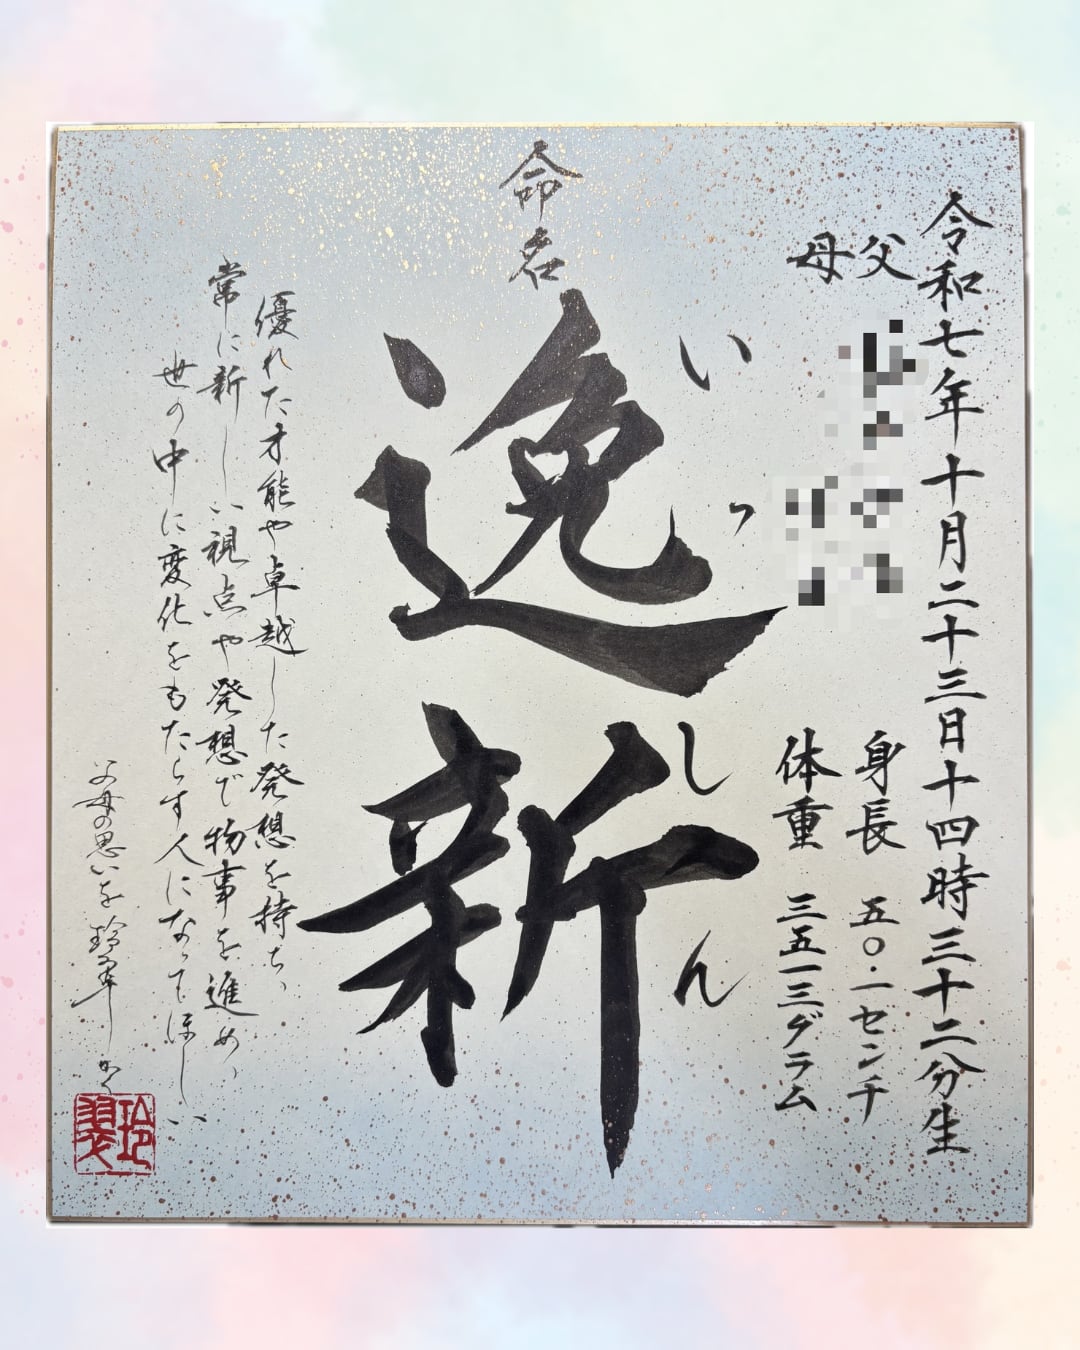 令和七年十月二十三日十四時三十二分生
父
母
身長 五〇・一センチ
体重 三五一三グラム
いっしん
命名
逸新
優れた才能や卓越した発想を持ち、
常に新しい視点や発想で物事を進め、
世の中に変化をもたらす人になってほしい
父母の思いを 玲翠 かく
玲翠